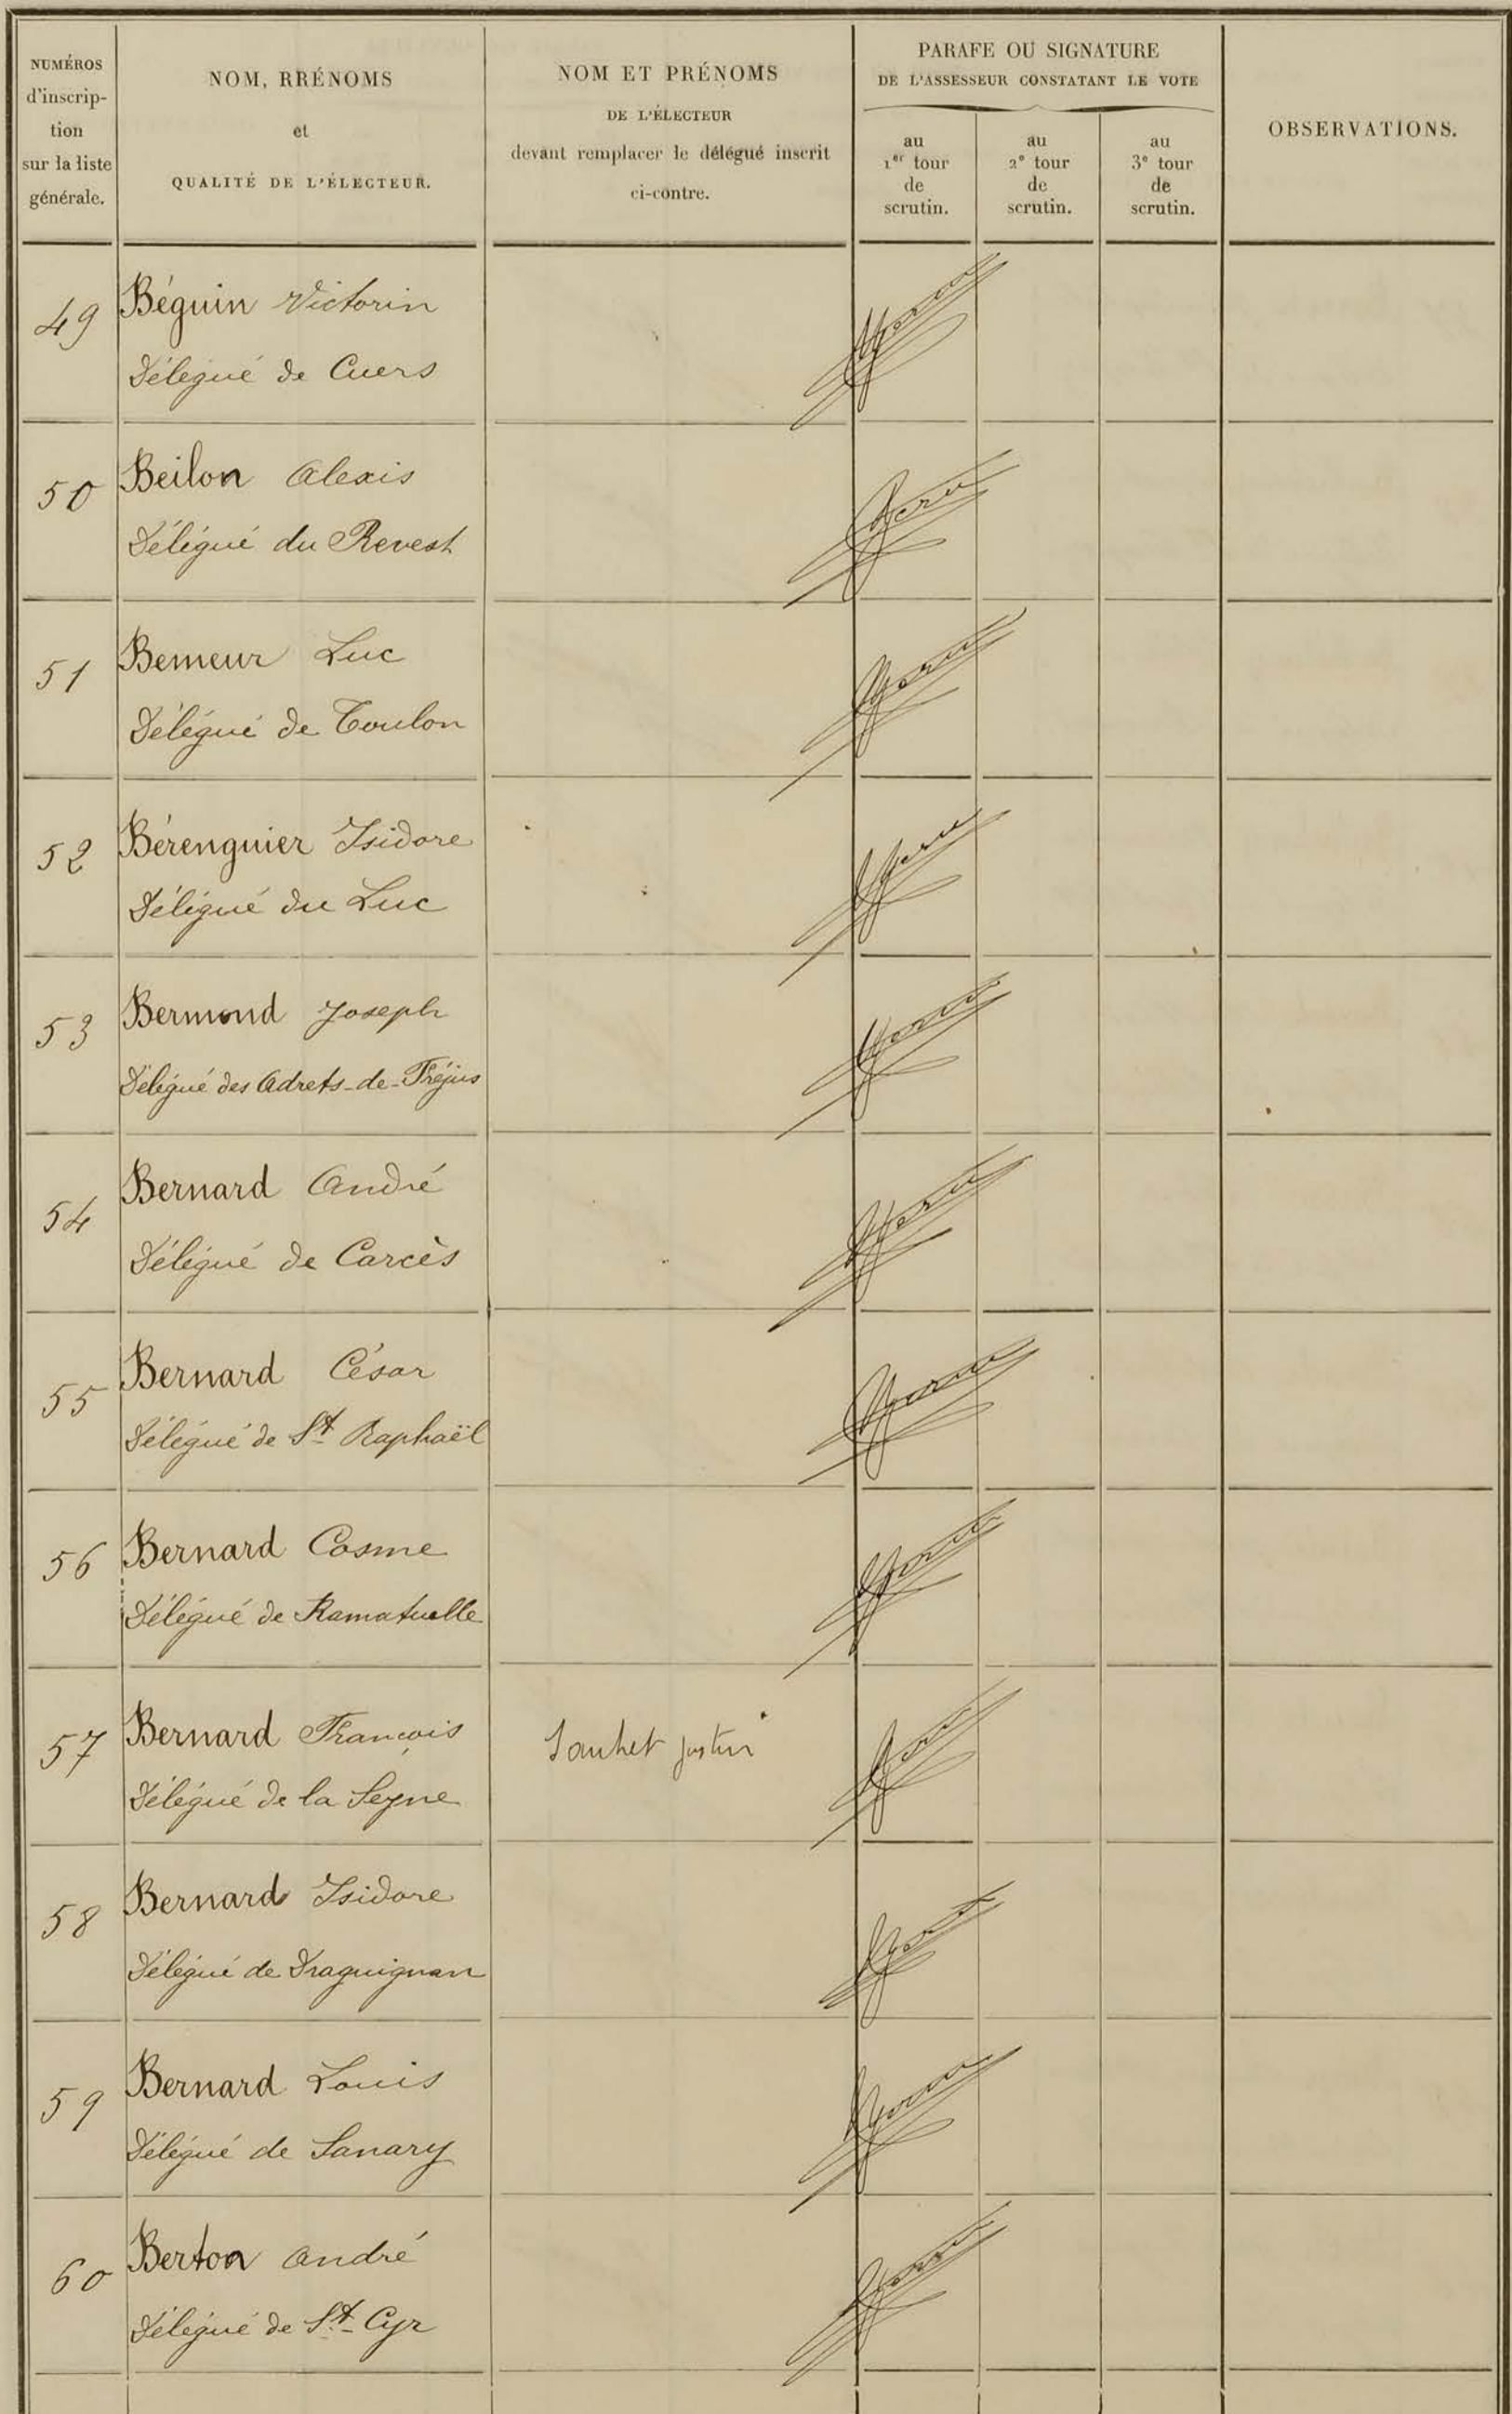 NUMÉROS
d'inscrip-
tion
sur la liste
générale.
NOM, RRÉNOMS
et
QUALITÉ DE L'ÉLECTEUR.
NOM ET PRÉNOMS
DE L'ÉLECTEUR
devant remplacer le délégué inscrit
ci-contre.
PARAFE OU SIGNATURE
DE L'ASSESSEUR CONSTATANT LE VOTE
au
1er tour
de
scrutin.
au
2e tour
de
scrutin.
au
3e tour
de
scrutin.
OBSERVATIONS.
49
Béguin Victorin
Délégué de Cuers
50
Beilon Alexis
Délégué du Revest
51
Bemeur Luc
Délégué de Toulon
52
Bérenguier Isidore
Délégué du Luc
53
Bermond Joseph
Délégué des Adrets-de-Fréjus
54
Bernard André
Délégué de Carcès
55
Bernard César
Délégué de St Raphaël
56
Bernard Cosme
Délégué de Ramatuelle
57
Bernard François
Délégué de la Seyne
Justin
58
Bernard Isidore
Délégué de Draguignan
59
Bernard Louis
Délégué de Sanary
60
Berton André
Délégué de St-Cyr